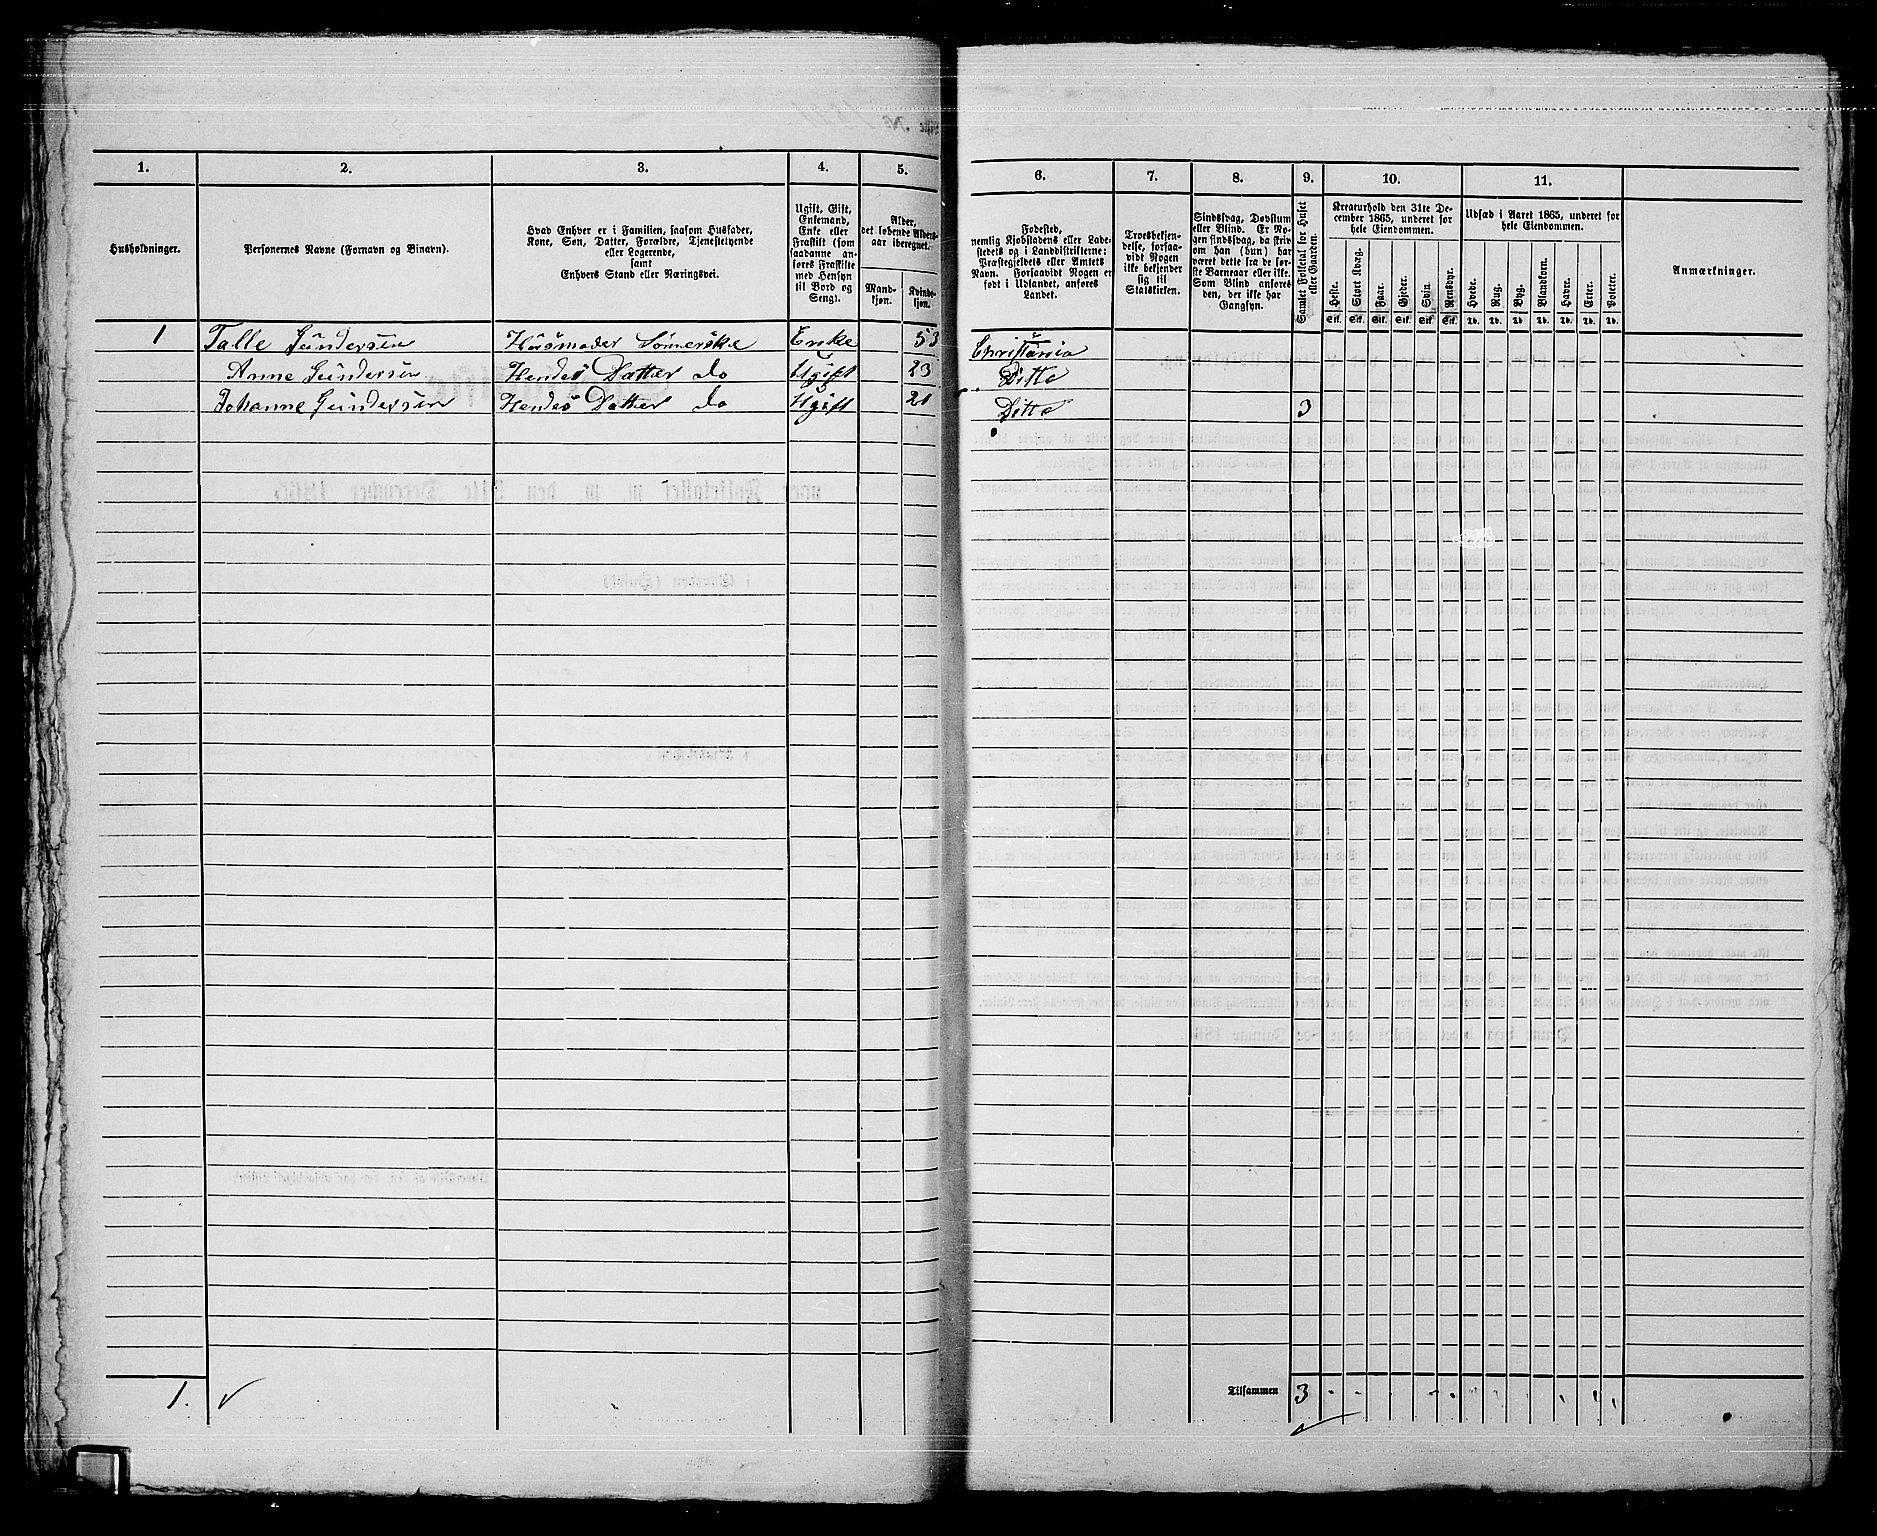 1.
2.
3.
4.
5.
Husholdninger.
Personernes Navne (Fornavn og Binavn).
Hvad Enhver er i Familien, saasom Husfader,
Kone, Søn, Datter, Forældre, Tjenestetyende
eller Logerende,
samt
Enhvers Stand eller Næringsvei.
Ugift, Gift,
Enkemand,
Enke eller
Fraskilt (som
saadanne an-
føres Fraskilte
med Hensyn
til Bord og
Seng).
Alder,
det løbende Alders-
aar iberegnet.
Mand-
kjøn.
Kvinde-
kjøn.
1 Talle Gundersen Husmoder Enke 53
Anne Gundersen Hendes Datter do Ugift 23
Johanne Gundersen Hendes Datter do Ugift 21
1.
6.
7.
8.
9.
10.
11.
Fødested,
nemlig Kjøbstadens eller Lade-
stedets og i Landdistrikterne:
Præstegjeldets eller Amtets
Navn. Forsaavidt Nogen er
født i Udlandet, anføres
Landet.
Troesbekjen-
delse, forsaa-
vidt Nogen
ikke bekjender
sig til
Statskirken.
Sindssvag, Døvstum
eller Blind. Er No-
gen sindssvag, da skriv
om han (hun) har
været dette fra de før-
ste Barneaar eller ikke.
Som Blind anføres
den, der ikke har
Gangsyn.
Samlet Folketal for Huset
eller Gaarden.
Kreaturhold den 31te De-
cember 1865, underet for
hele Eiendommen.
Heste.
Stort Kvæg.
Faar.
Gjeder.
Sviin.
Rensdyr.
Stk. Stk. Stk. Stk. Stk. Stk.
Udsæd i Aaret 1865, underet for
hele Eiendommen.
Hvede.
Rug.
Byg.
Blandkorn.
Havre.
Erter.
Poteter.
Td. Td. Td. Td. Td. Td. Td.
Anmærkninger.
Christiania
Ditto
Ditto 3
Tilsammen 3